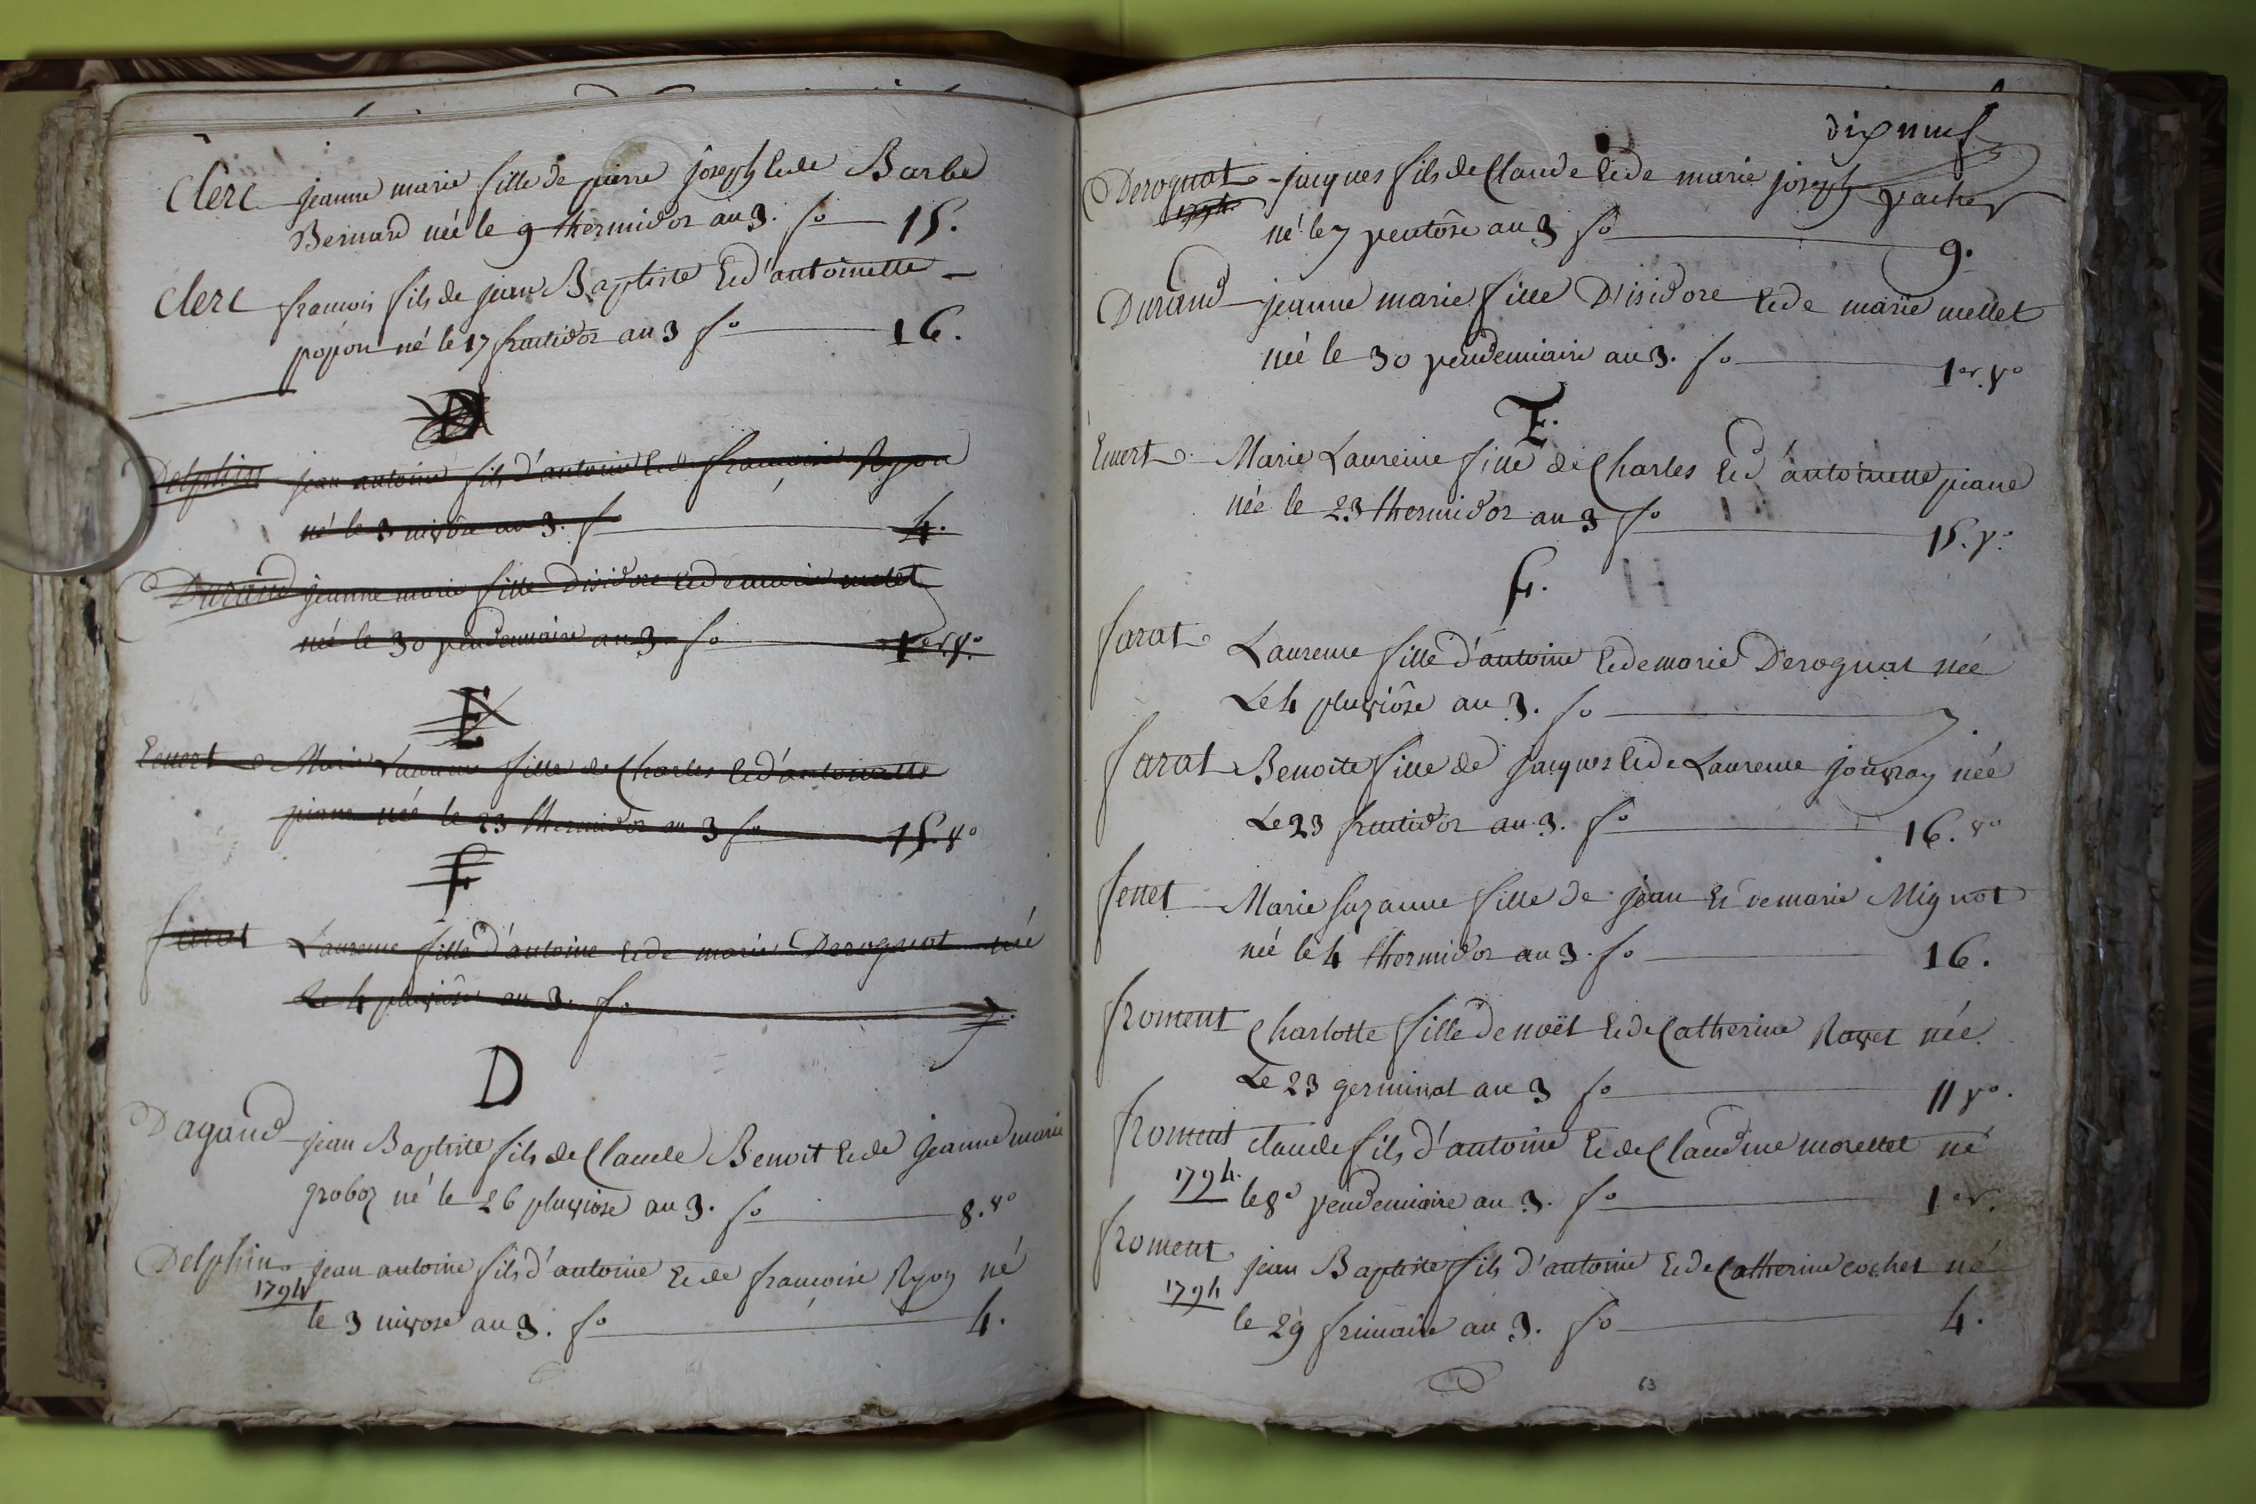 Clerc jeanne marie fille de pierre joseph & de Barbe
Bernard née le 9 thermidor an 3. fo 15.
Clerc francois fils de jean Baptiste & d'antoinette
popon né le 17 fructidor an 3 fo 16.
D
Delphin jean antoine fils d'antoine & de francoise Ryon
né le 3 nivôse an 3. f 4.
Durand jeanne marie fille d'isidore & de marie melet
née le 30 vendemiaire an 3 fo 1er. vo.
E
Emert Marie Laurence fille de Charles & d'antoinette
piane née le 23 thermidor an 3 fo 15. vo
F
farat Laurence fille d'antoine & de marie Derognat née
Le 4 pluviôse an 3. fo 7.
D
Dagand jean Baptiste fils de Claude Benoit & de jeanne marie
groboz né le 26 pluviose an 3. fo 8. vo
Delphin jean antoine fils d'antoine & de francoise Ryon né
1794
le 3 nivose an 3. fo 4.
dix neuf
Derognat jacques fils de Claude & de marie joseph vacher
1794.
né le 7 ventôse an 3 fo 9.
Durand jeanne marie fille D'isidore & de marie mellet
née le 30 vendemiaire an 3. fo 1er. vo
E.
Emert Marie Laurence fille de Charles & d'antoinette piane
née le 23 thermidor an 3 fo 15. vo.
F.
farat Laurence fille d'antoine & de marie Derognat née
Le 4 pluviôse an 3. fo 7.
farat Benoite fille de jacques & de Laurence jouvray née
Le 23 fructidor an 3. fo 16. vo
fenet Marie suzanne fille de jean & de marie Mignot
née le 4 thermidor an 3. fo 16.
froment Charlotte fille de noël & de Catherine Ravet née
Le 23 germinal an 3 fo 11 vo.
froment claude fils d'antoine & de Claudine morettet né
1794.
le 8e vendemiaire an 3. fo 1er.
froment jean Baptiste fils d'antoine & de Catherine cochet né
1794
le 29 frimaire an 3. fo 4.
63